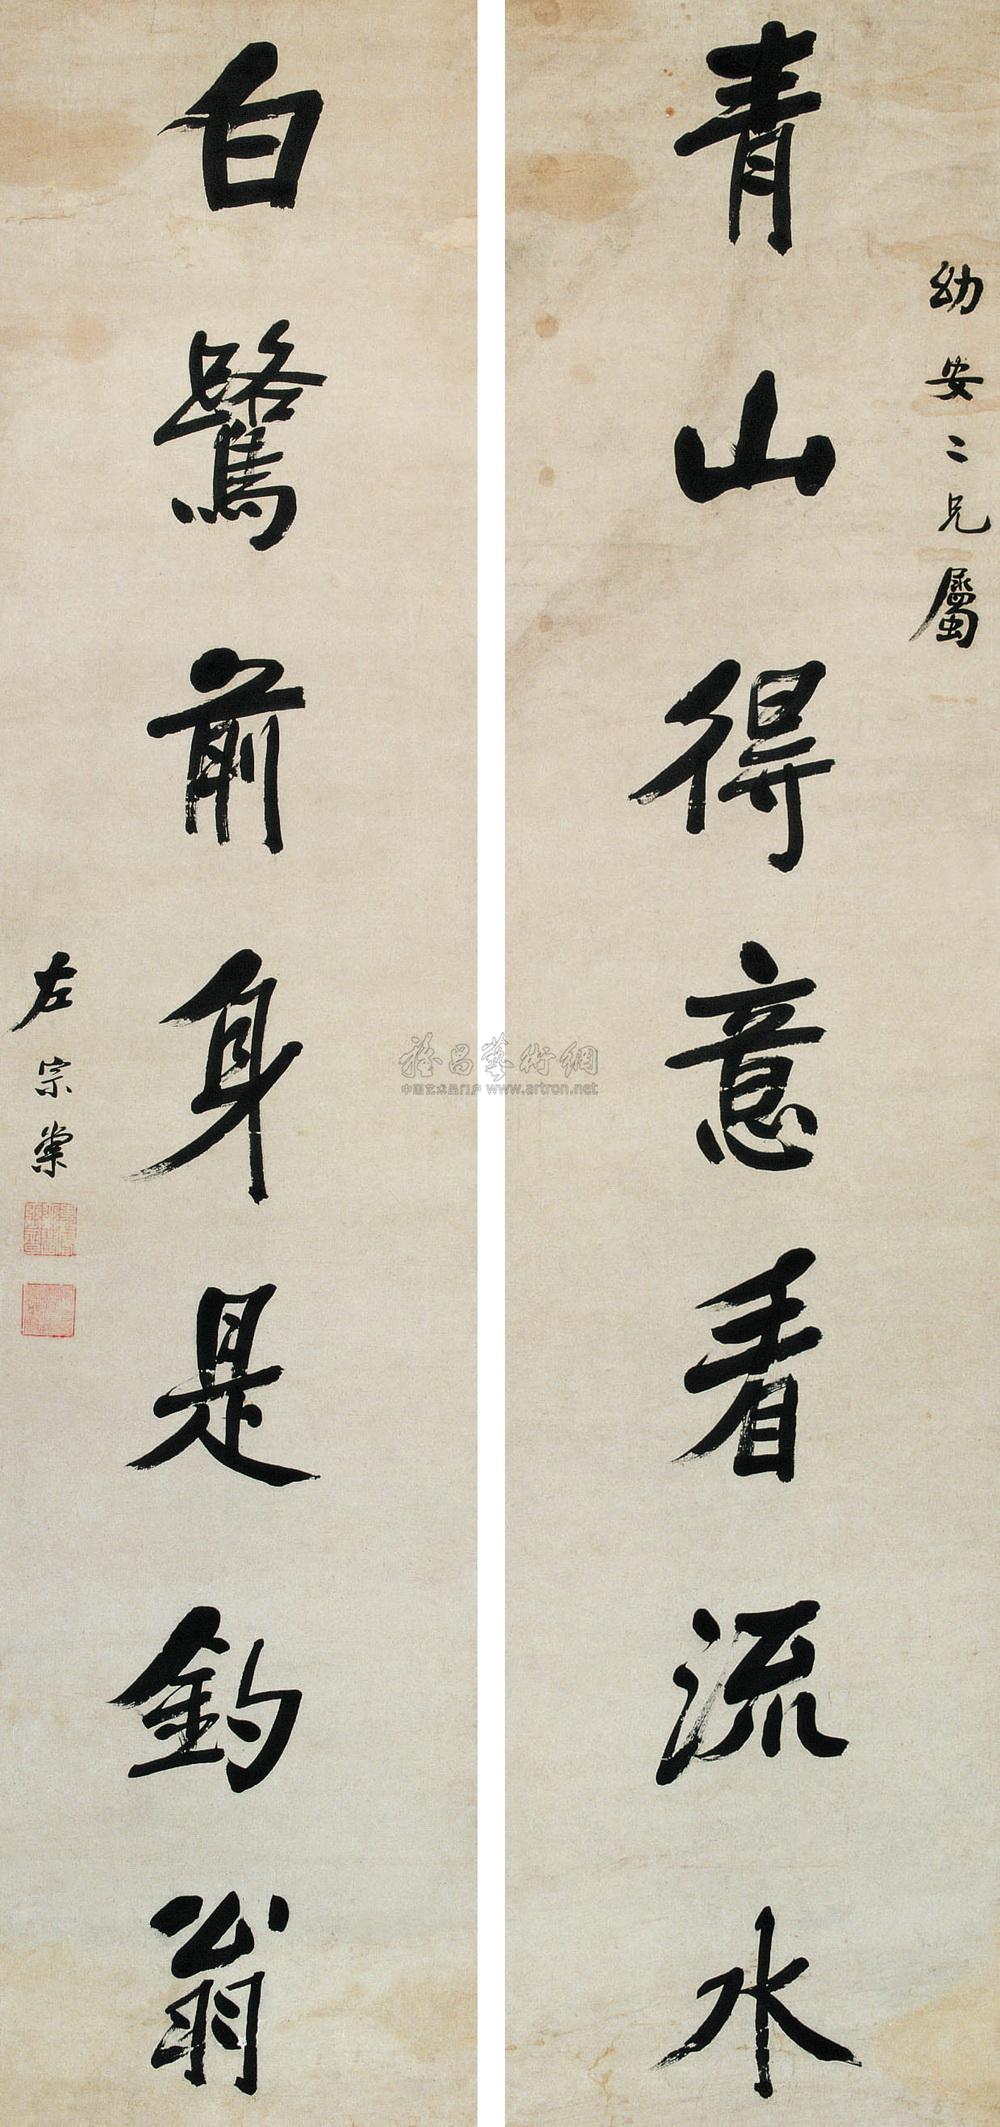 幼安二兄屬
青山得意看流水
白鷺前身是釣翁
左宗棠
雅昌藝術網
中国艺术品门户 www.artron.net